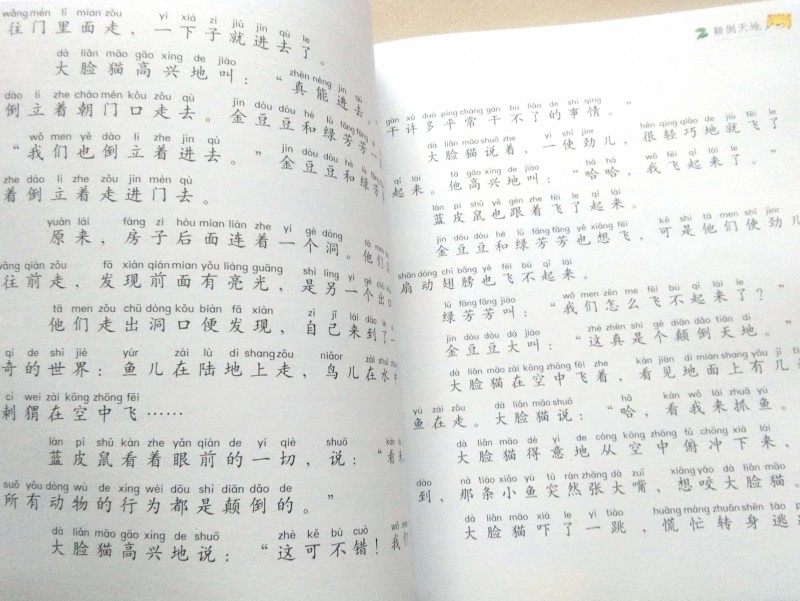 wǎng mén lǐ miàn zǒu yí xià zi jiù jìn qù le
往门里面走，一下子就进去了。
dà liǎn māo gāo xìng de jiào zhēn néng jìn qù
大脸猫高兴地叫：“真能进去。
dào lì zhe cháo mén kǒu zǒu qù jīn dòu dou hé lǜ fāng fang
倒立着朝门口走去。金豆豆和绿芳芳
wǒ men yě dào lì zhe jìn qù jīn dòu dou hé lǜ fāng
“我们也倒立着进去。”金豆豆和绿芳
zhe dào lì zhe zǒu jìn mén qù
着倒立着走进门去。
yuán lái fáng zi hòu miàn lián zhe yí gè dòng
原来，房子后面连着一个洞。他们
wǎng qián zǒu fā xiàn qián miàn yǒu liàng guāng shì lìng yí gè chū
往前走，发现前面有亮光，是另一个出口
tā men zǒu chū dòng kǒu biàn fā xiàn zì jǐ lái dào le
他们走出洞口便发现，自己来到了一
qí de shì jiè yúr zài lù dì shang zǒu niǎor zài shuǐ
奇的世界：鱼儿在陆地上走，鸟儿在水中
cì wei zài kōng zhōng fēi
刺猬在空中飞……
lán pí shǔ kàn zhe yǎn qián de yí qiè shuō
蓝皮鼠看着眼前的一切，说：“看
suǒ yǒu dòng wù de xíng wéi dōu shì diān dǎo de
所有动物的行为都是颠倒的。”
dà liǎn māo gāo xìng de shuō zhè kě bú cuò
大脸猫高兴地说：“这可不错！我们
2 颠倒天地
gàn xǔ duō píng cháng gàn bù liǎo de shì qing
干许多平常干不了的事情。”
dà liǎn māo shuō zhe yì shǐ jìnr hěn qīng qiǎo de jiù fēi le
大脸猫说着，一使劲儿，很轻巧地就飞了
qǐ lái tā gāo xìng de jiào hā hā wǒ fēi qǐ lái le
起来。他高兴地叫：“哈哈，我飞起来了。”
lán pí shǔ yě gēn zhe fēi le qǐ lái
蓝皮鼠也跟着飞了起来。
jīn dòu dou hé lǜ fāng fang yě xiǎng fēi kě shì tā men shǐ jìnr
金豆豆和绿芳芳也想飞，可是他们使劲儿
shān dòng chì bǎng yě fēi bù qǐ lái
扇动翅膀也飞不起来。
lǜ fāng fang jiào wǒ men zěn me fēi bù qǐ lái le
绿芳芳叫：“我们怎么飞不起来了？”
jīn dòu dou dà jiào zhè zhēn shì gè diān dǎo tiān dì
金豆豆大叫：“这真是个颠倒天地。”
dà liǎn māo zài kōng zhōng fēi zhe kàn jiàn dì miàn shang yǒu jǐ
大脸猫在空中飞着，看见地面上有几
yú zài zǒu dà liǎn māo shuō hā kàn wǒ lái zhuā yú
鱼在走。大脸猫说：“哈，看我来抓鱼。
dà liǎn māo dé yì de cóng kōng zhōng fǔ chōng xià lái
大脸猫得意地从空中俯冲下来，
dào nà tiáo xiǎo yú tū rán zhāng dà zuǐ xiǎng yǎo dà liǎn māo
到，那条小鱼突然张大嘴，想咬大脸猫。
dà liǎn māo xià le yí tiào huāng máng zhuǎn shēn táo
大脸猫吓了一跳，慌忙转身逃